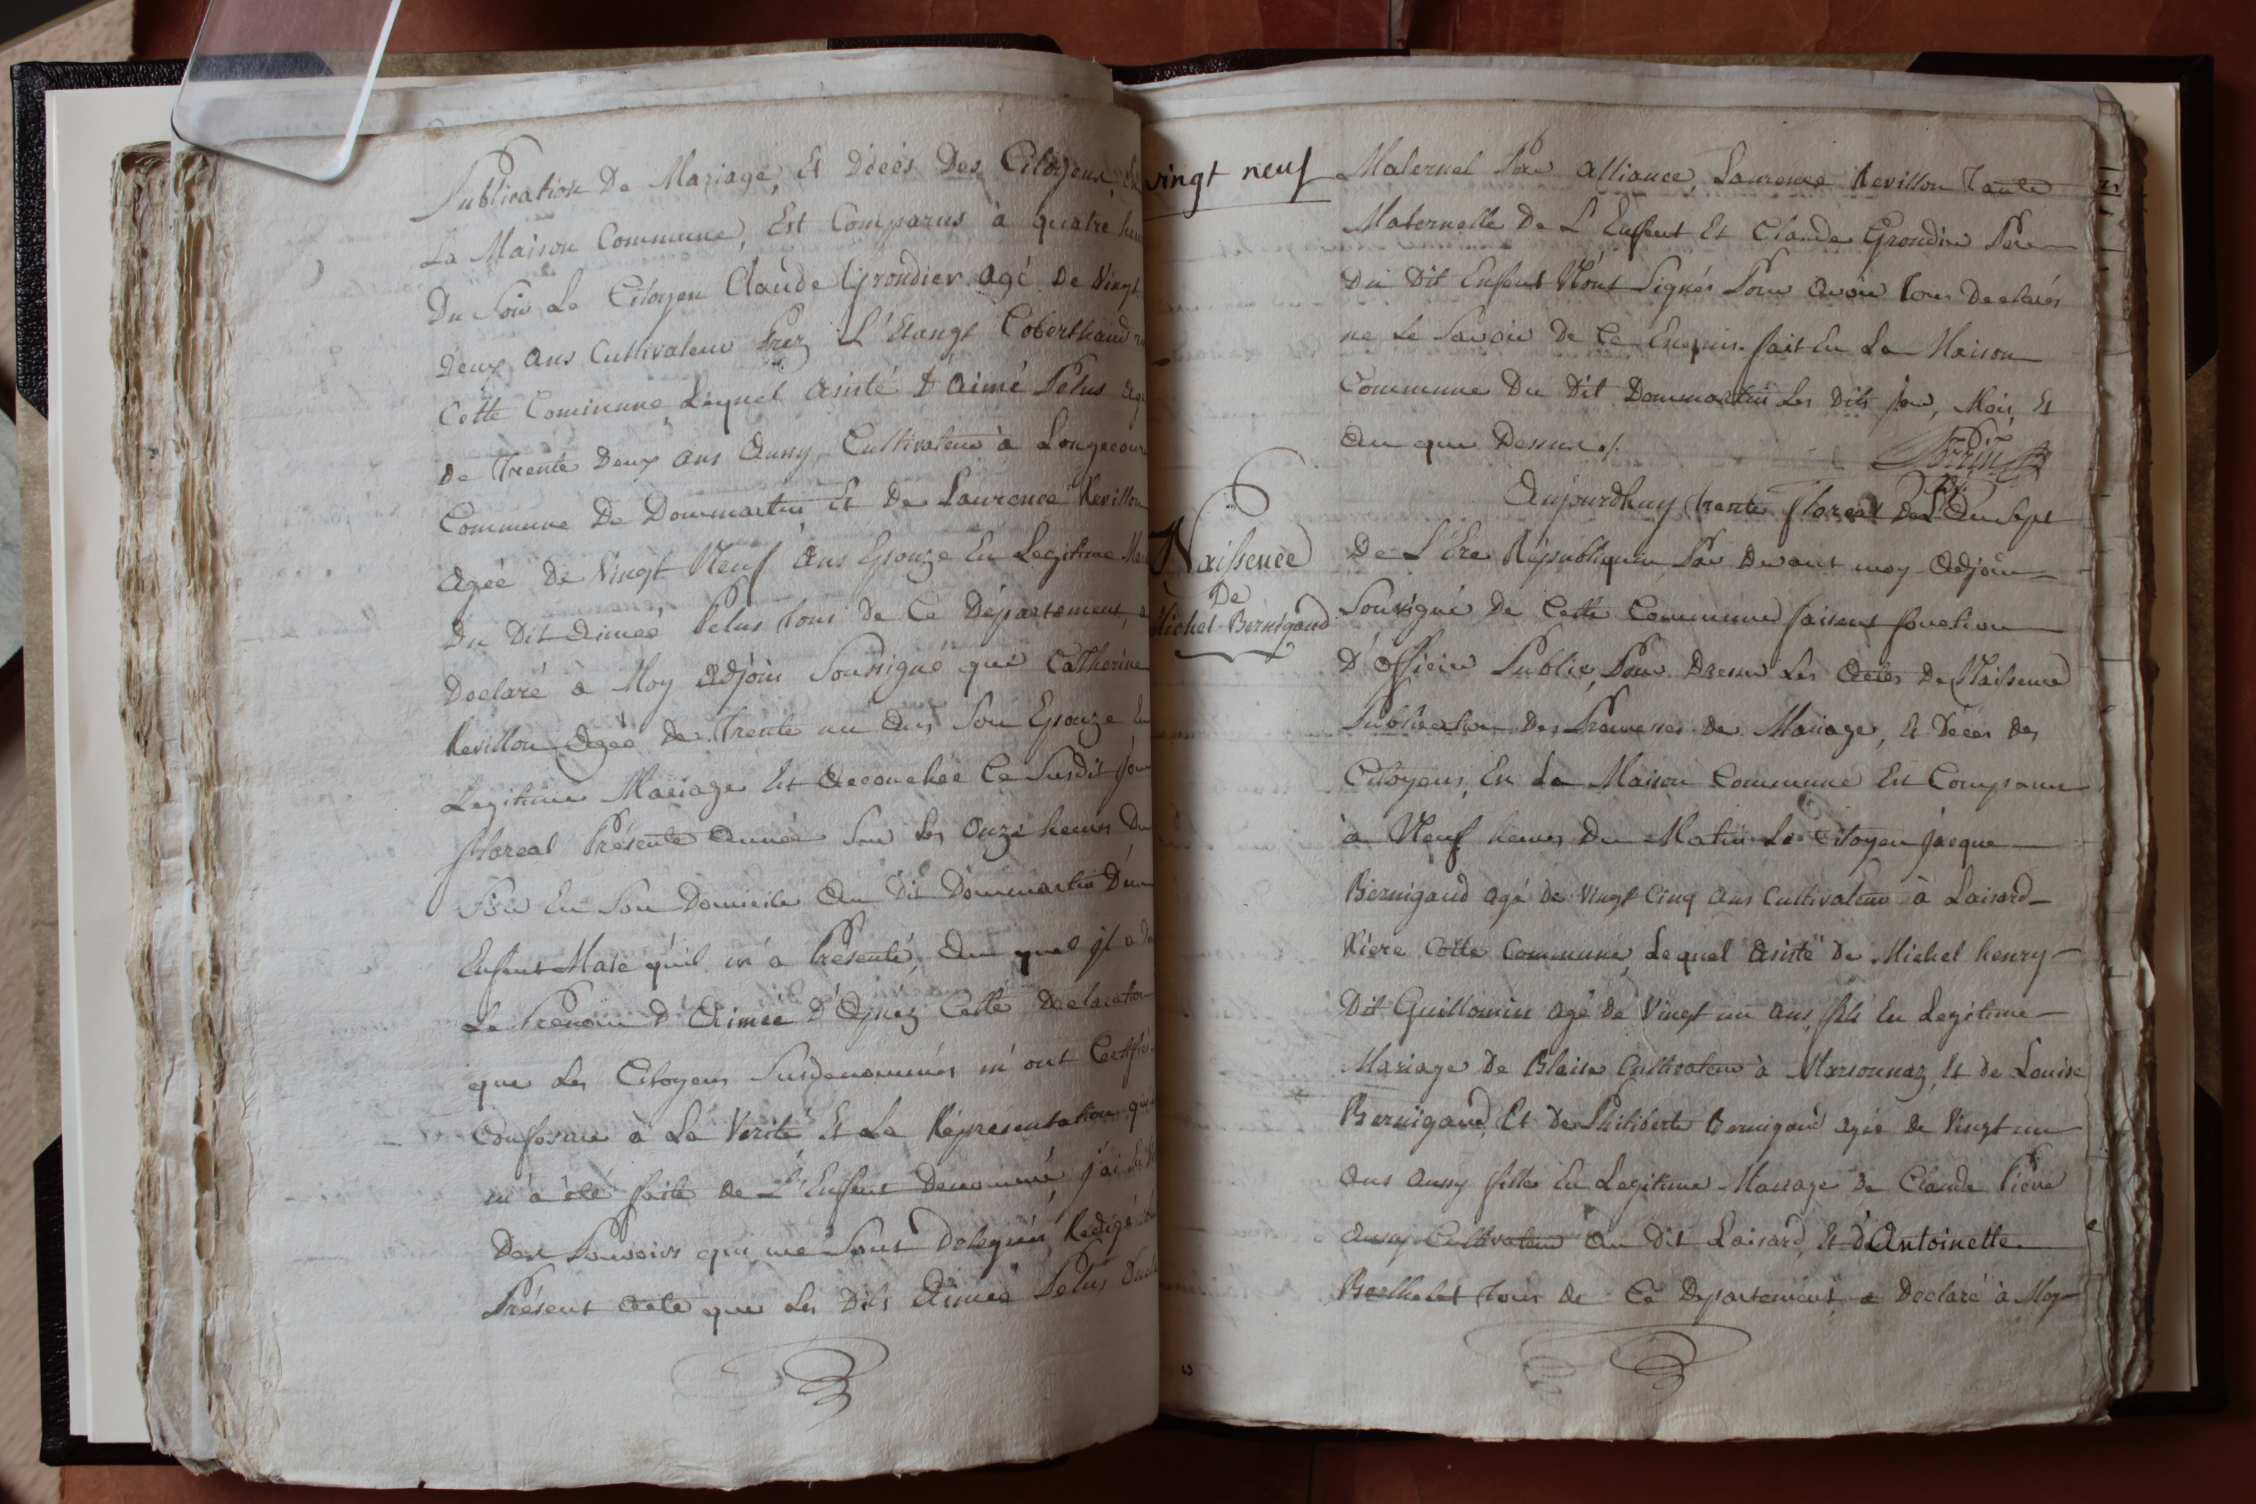 Publication De Mariage, Et Décés Des Citoyens, En
La Maison Commune, Est Comparus à quatre heu
Du Soir Le Citoyen Claude Grondier agé De Vingt
Deux ans Cultivateur Prez L'Etangt Coberthaud
Cette Commune, Lequel asisté D'aimé Pelus agé
De Trente Deux ans aussy Cultivateur à Longecour
Commune De Dommartin Et De Laurence Revillon
agée De Vingt Neuf ans Epouze En Legitime Ma
Du Dit Aimée Pelus tous De Ce Département, a
Declaré à Moy adjoin Soussigné que Catherine
Revillon agée de Trente un ans Son Epouze En
Legitime Mariage Est accouchée Ce Susdit jour
floreal Présente année Sur Les Onze heures Du
Soir En Son Domicile Au Dit Dommartin D'un
Enfent Male qu'il m'a Présenté, Au quel jl a Do
Le Prenom D'Aimée D'Apres Cette Declaration
que Les Citoyens Susdenommés m'ont Certifié
Conforme à La Verité Et La Répresentation qui
m'a été faite De L'Enfent Denommé, j'ai En
Des Pouvoirs qui me Sont Delegués, Redigé
Présent acte que Les Dits Aimée Pelus
vingt neuf
Maternel Par alliance, Laurence Revillon Tante
Maternelle De L'Enfent Et Claude Grondier Pere
Du Dit Enfent N'ont Signés Pour avoir tous Declarés
ne Le Savoir De Ce Enquis. fait En La Maison
Commune Du Dit Dommartin Les Dits jour, Mois, Et
an que Dessus ./.
Naissence
De
Michel Bernigaud
Aujourdhuy trente floreal De L'An Sept
De L'Ere Républiquin Par Devant moy adjoin
Soussigné De Cette Commune faisent fonction
D'Officier Public, Pour Dresser Les Actes De Naissence
Publication Des Promesses De Mariage, Et Déces des
Citoyens, En La Maison Commune Est Comparus
à Neuf heures Du Matin Le Citoyen jacque
Bernigaud agé De Vingt Cinq ans Cultivateur à Laisard
Riere Cette Commune, Lequel asisté De Michel henry
Dit Guillomin agé De Vingt un ans, fils En Legitime
Mariage De Blaise Cultivateur à Marsonnaz, Et de Louise
Bernigaud, Et De Philiberte Bernigaud agée De Vingt un
ans aussy fille En Legitime Mariage De Claude Pierre
aussy Cultivateur Au Dit Laisard, Et d'Antoinette
Berthelet tous De Ce Departement, a Declaré à Moy